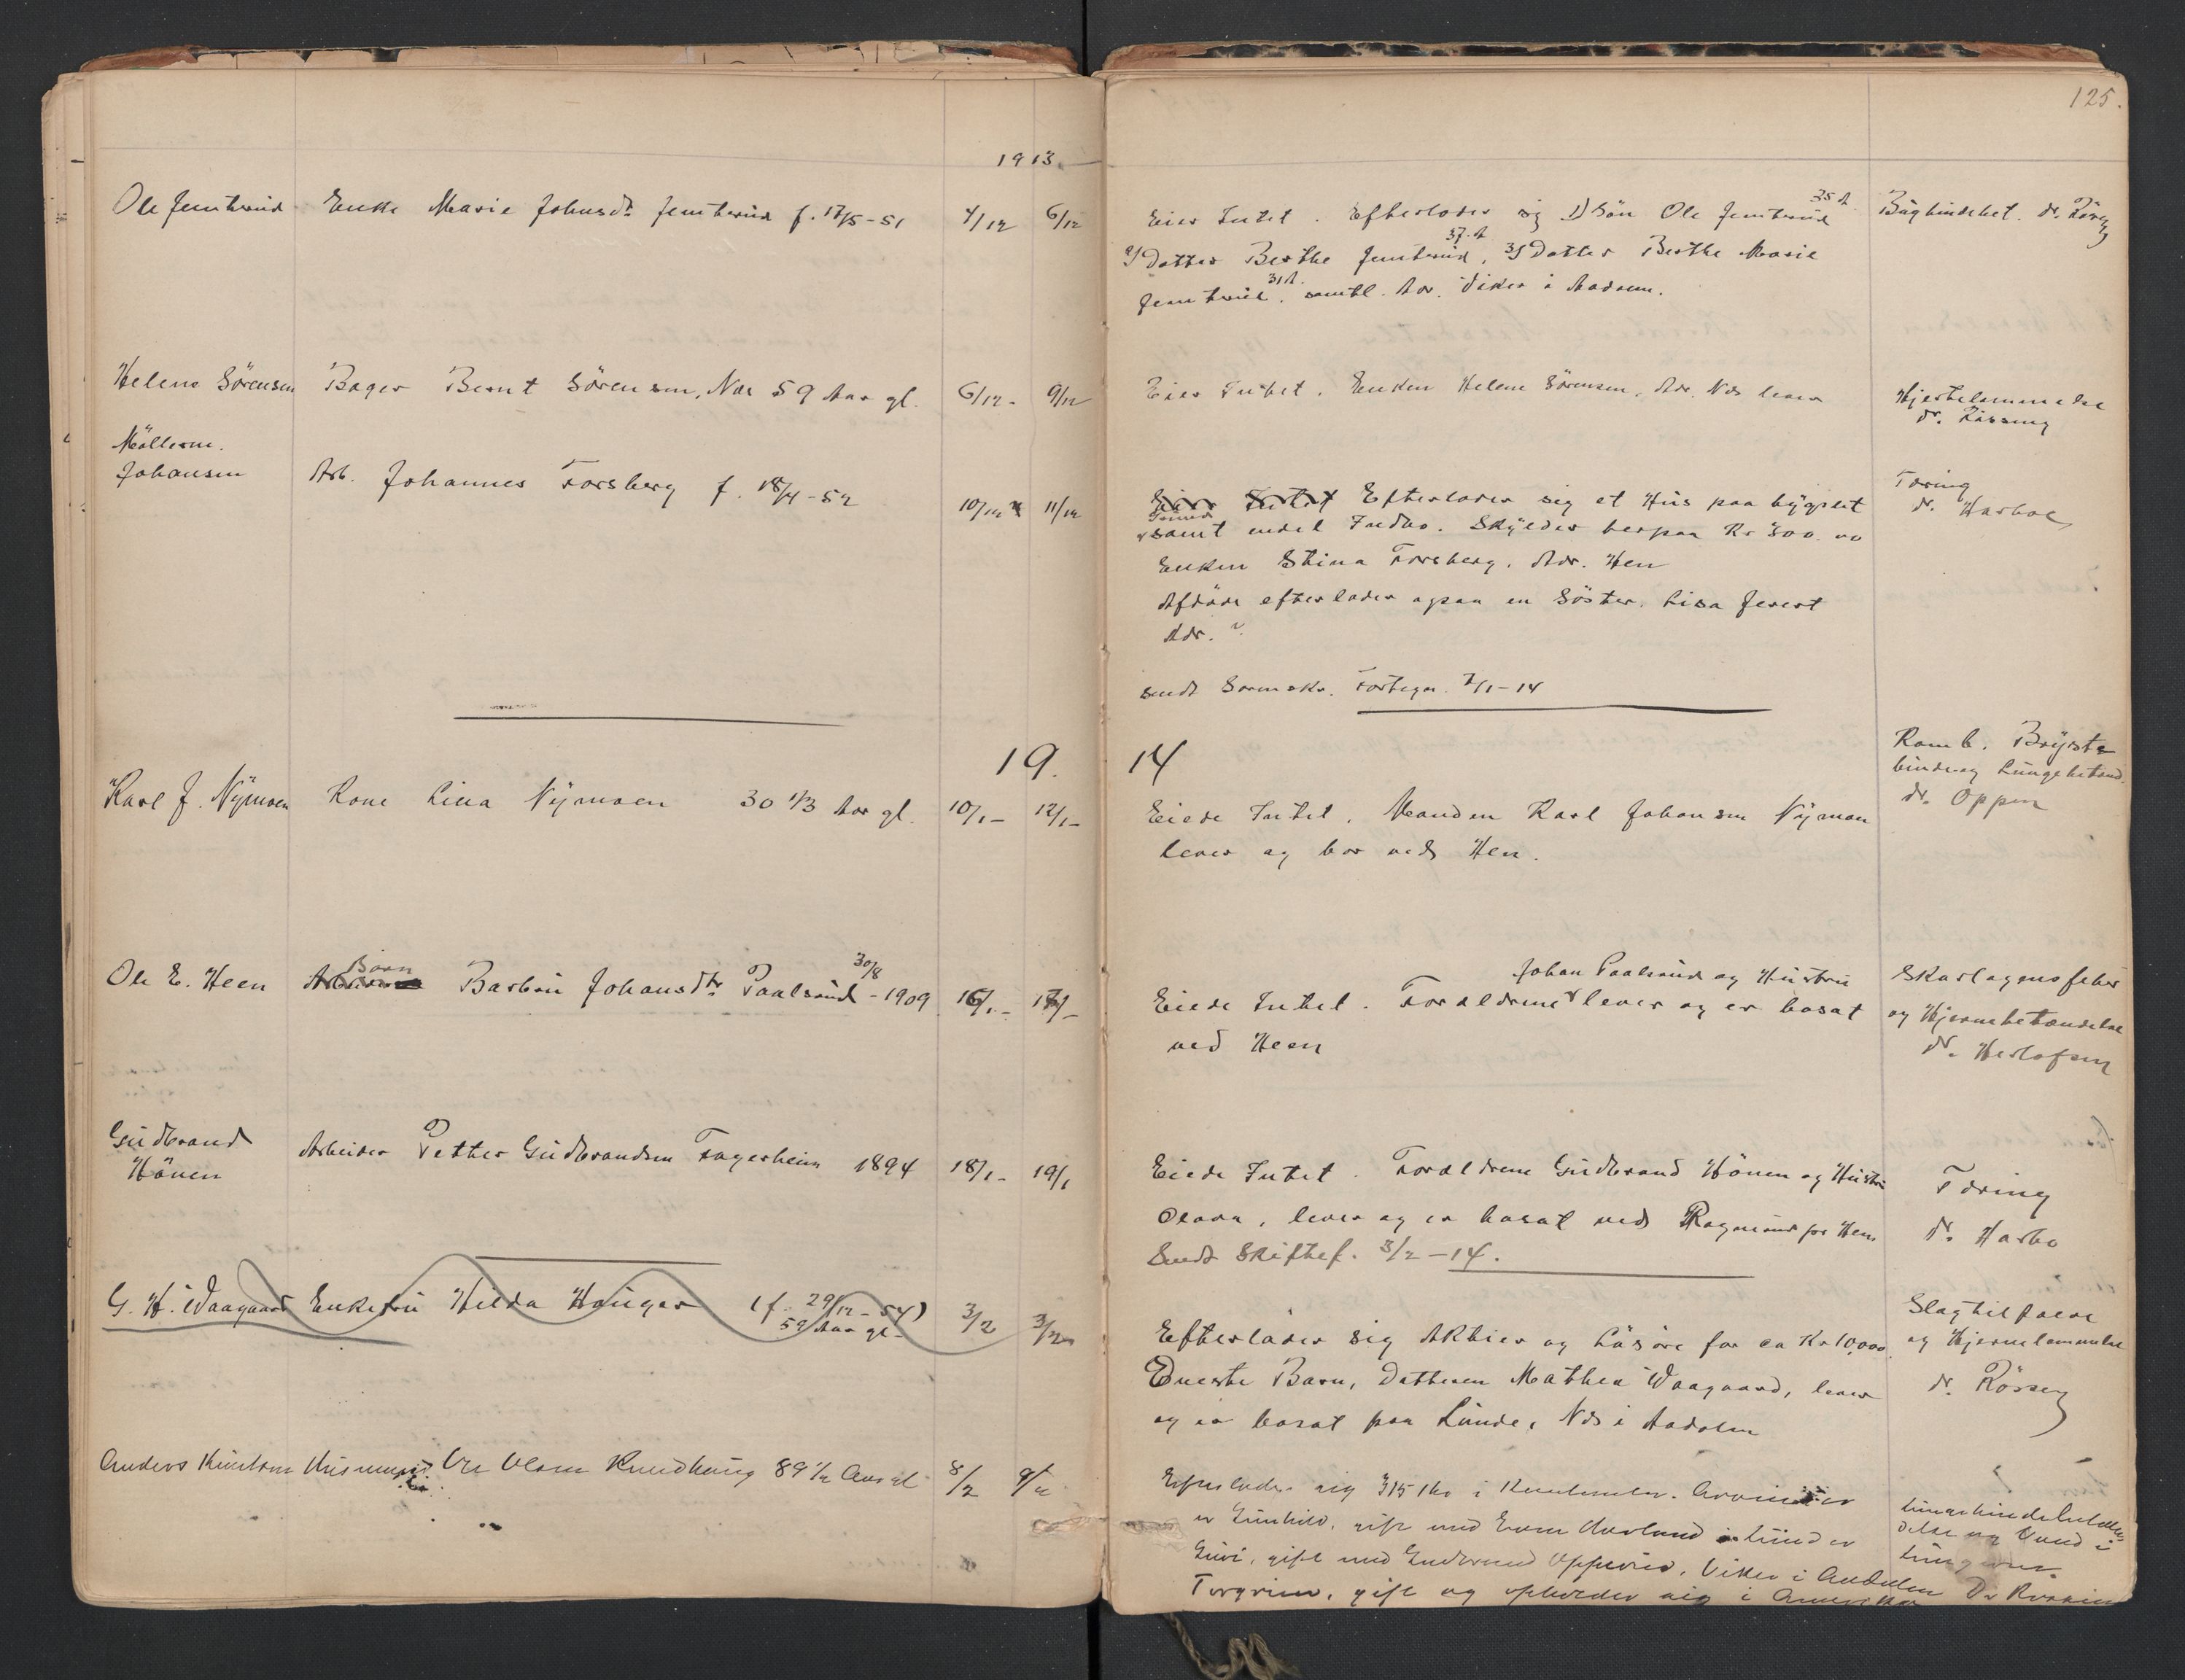 125.
1913
Ole Jemterud Enke Marie Johnsdtr Jemterud f. 17/5-51 4/12 6/12
Eier Intet. Efterlader sig 1) Sön Ole Jemterud 35 A
2) Datter Berthe Jemterud 37. A, 3) Datter Berthe Marie
Jemterud 31 A. samtl. Adr. Viker i Aadalen.
Bughindebet. dr.
Helene Sörensen Bager Bernt Sörensen, Næs 59 Aar gl. 6/12- 9/12
Eier Intet. Enken Helene Sörensen, Adr. Næs lever
Hjertelammelse
dr. Rössing
Möllerm.
Johansen Arb. Johannes Forsberg f. 18/4-52 10/12 11/12
Eier Intet Efterlader sig et Hus paa bygslet
Tomt
samt endel Indbo. Skylder herpaa Kr 300.00
Enken Stina Forsberg. Adr. Hen
Afdöde efterlader ogsaa en Söster, Lisa
Adr. ?
Tæring
dr. Harboe
sendt Sorenskr. Fortegn. 7/1-14
19. 14
Karl J. Nymoen Kone Lina Nymoen 30 1/3 Aar gl. 10/1- 12/1-
Eiede Intet. Manden Karl Johansen Nymoen
lever og bor ved Hen.
Komb. Bryst
hinde og Lungebetænd.
dr. Oppen
Ole E. Heen Barn Barbro Johansdtr. Paalsrud 30/8-1909 16/1- 17/1-
Johan Paalsrud og Hustru
Eiede Intet. Forældrene lever og er bosat
ved Heen
Skarlagensfeber
og Hjernebetændelse
dr. Herlofsen
Gudbrand
Hönen Arbeider Petter Gudbrandsen Fagerheim 1894 18/1- 19/1
Eiede Intet. Forældrene Gudbrand Hönen og Hustru
Olava, lever og er bosat ved Ragnerud pr Hen.
Sendt Skiftef. 3/2-14.
Tæring
dr. Harbo
G. H. Waagaard Enkefru Hilda Hauger (f. 29/12-54) 3/2 3/2
59 Aar gl-
Efterlader sig Aktier og Lösöre for ca Kr 10,000
Eneste Barn, Datteren Mathea Waagaard, lever
og er bosat paa Lunde, Næs i Aadalen
Slagtilfælde
og Hjernelammelse
dr. Rössing
Anders Ole Olsen 89 1/2 Aar gl 8/2 9/2
Efterlader sig 315 Kr i Arvinger
er Gunhild, gift med
Guri, gift med Gudbrand Opperud, Viker i Aadalen
Torgrim, gift og opholder sig i Amerika
Lungehindebetæn-
delse og Vand i
Lungerne
Dr